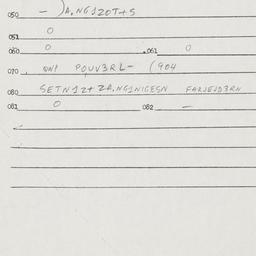 050 – )A.NG1ZOT+S
051 O
060 O .061 O
070 . QN1 POUV3RL– (904
080 SETN1Z+ ZA.NG1NIGESN FARJEJD3RN
081 O 082 —